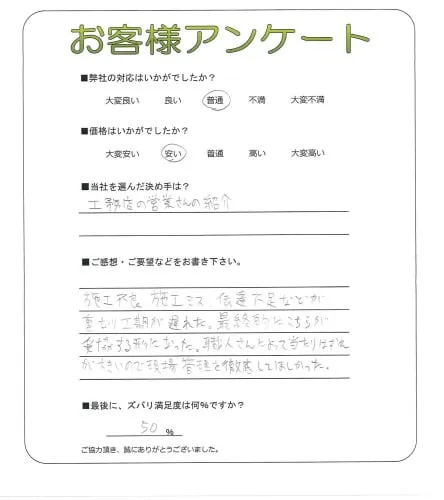 お客様アンケート
■弊社の対応はいかがでしたか？
大変良い 良い 普通 不満 大変不満
■価格はいかがでしたか？
大変安い 安い 普通 高い 大変高い
■当社を選んだ決め手は？
工務店の営業さんの紹介
■ご感想・ご要望などをお書き下さい。
施工不良、施工ミス、伝達不足などが
重なり工期が遅れた。最終的にこちらが
妥協する形になった。職人さんによって当たりはずれ
が大きいので現場管理を徹底してほしかった。
■最後に、ズバリ満足度は何%ですか？
50 %
ご協力頂き、誠にありがとうございました。